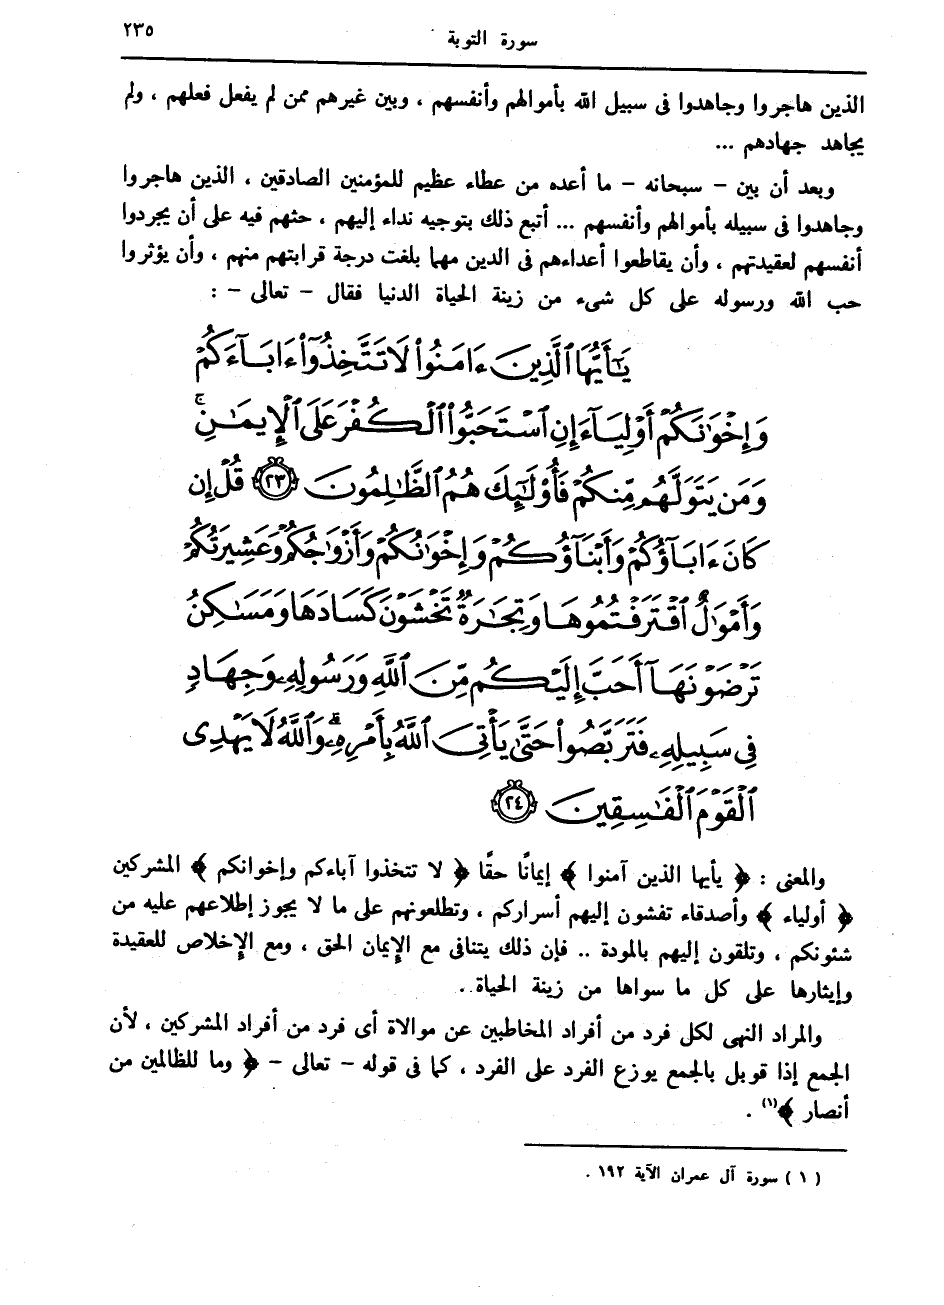 سورة التوبة
٢٣٥
الذين هاجروا وجاهدوا فى سبيل الله بأموالهم وأنفسهم ، وبين غيرهم ممن لم يفعل فعلهم ، ولم
يجاهد جهادهم ...
وبعد أن بين – سبحانه – ما أعده من عطاء عظيم للمؤمنين الصادقين ، الذين هاجروا
وجاهدوا فى سبيله بأموالهم وأنفسهم ... أتبع ذلك بتوجيه نداء إليهم ، حثهم فيه على أن يجردوا
أنفسهم لعقيدتهم ، وأن يقاطعوا أعداءهم فى الدين مهما بلغت درجة قرابتهم منهم ، وأن يؤثروا
حب الله ورسوله على كل شىء من زينة الحياة الدنيا فقال – تعالى – :
يَٰٓأَيُّهَا ٱلَّذِينَ ءَامَنُوا۟ لَا تَتَّخِذُوٓا۟ ءَابَآءَكُمْ
وَإِخْوَٰنَكُمْ أَوْلِيَآءَ إِنِ ٱسْتَحَبُّوا۟ ٱلْكُفْرَ عَلَى ٱلْإِيمَٰنِ ۚ
وَمَن يَتَوَلَّهُم مِّنكُمْ فَأُو۟لَٰٓئِكَ هُمُ ٱلظَّٰلِمُونَ ﴿٢٣﴾ قُلْ إِن
كَانَ ءَابَآؤُكُمْ وَأَبْنَآؤُكُمْ وَإِخْوَٰنُكُمْ وَأَزْوَٰجُكُمْ وَعَشِيرَتُكُمْ
وَأَمْوَٰلٌ ٱقْتَرَفْتُمُوهَا وَتِجَٰرَةٌ تَخْشَوْنَ كَسَادَهَا وَمَسَٰكِنُ
تَرْضَوْنَهَآ أَحَبَّ إِلَيْكُم مِّنَ ٱللَّهِ وَرَسُولِهِۦ وَجِهَادٍ
فِى سَبِيلِهِۦ فَتَرَبَّصُوا۟ حَتَّىٰ يَأْتِىَ ٱللَّهُ بِأَمْرِهِۦ ۗ وَٱللَّهُ لَا يَهْدِى
ٱلْقَوْمَ ٱلْفَٰسِقِينَ ﴿٢٤﴾
والمعنى : ﴿ يأيها الذين آمنوا ﴾ إيمانًا حقًا ﴿ لا تتخذوا آباءكم وإخوانكم ﴾ المشركين
﴿ أولياء ﴾ وأصدقاء تفشون إليهم أسراركم ، وتطلعونهم على ما لا يجوز إطلاعهم عليه من
شئونكم ، وتلقون إليهم بالمودة .. فإن ذلك يتنافى مع الإيمان الحق ، ومع الإخلاص للعقيدة
وإيثارها على كل ما سواها من زينة الحياة .
والمراد النهى لكل فرد من أفراد المخاطبين عن موالاة أى فرد من أفراد المشركين ، لأن
الجمع إذا قوبل بالجمع يوزع الفرد على الفرد ، كما فى قوله – تعالى – ﴿ وما للظالمين من
أنصار ﴾(١) .
( ١ ) سورة آل عمران الآية ١٩٢ .